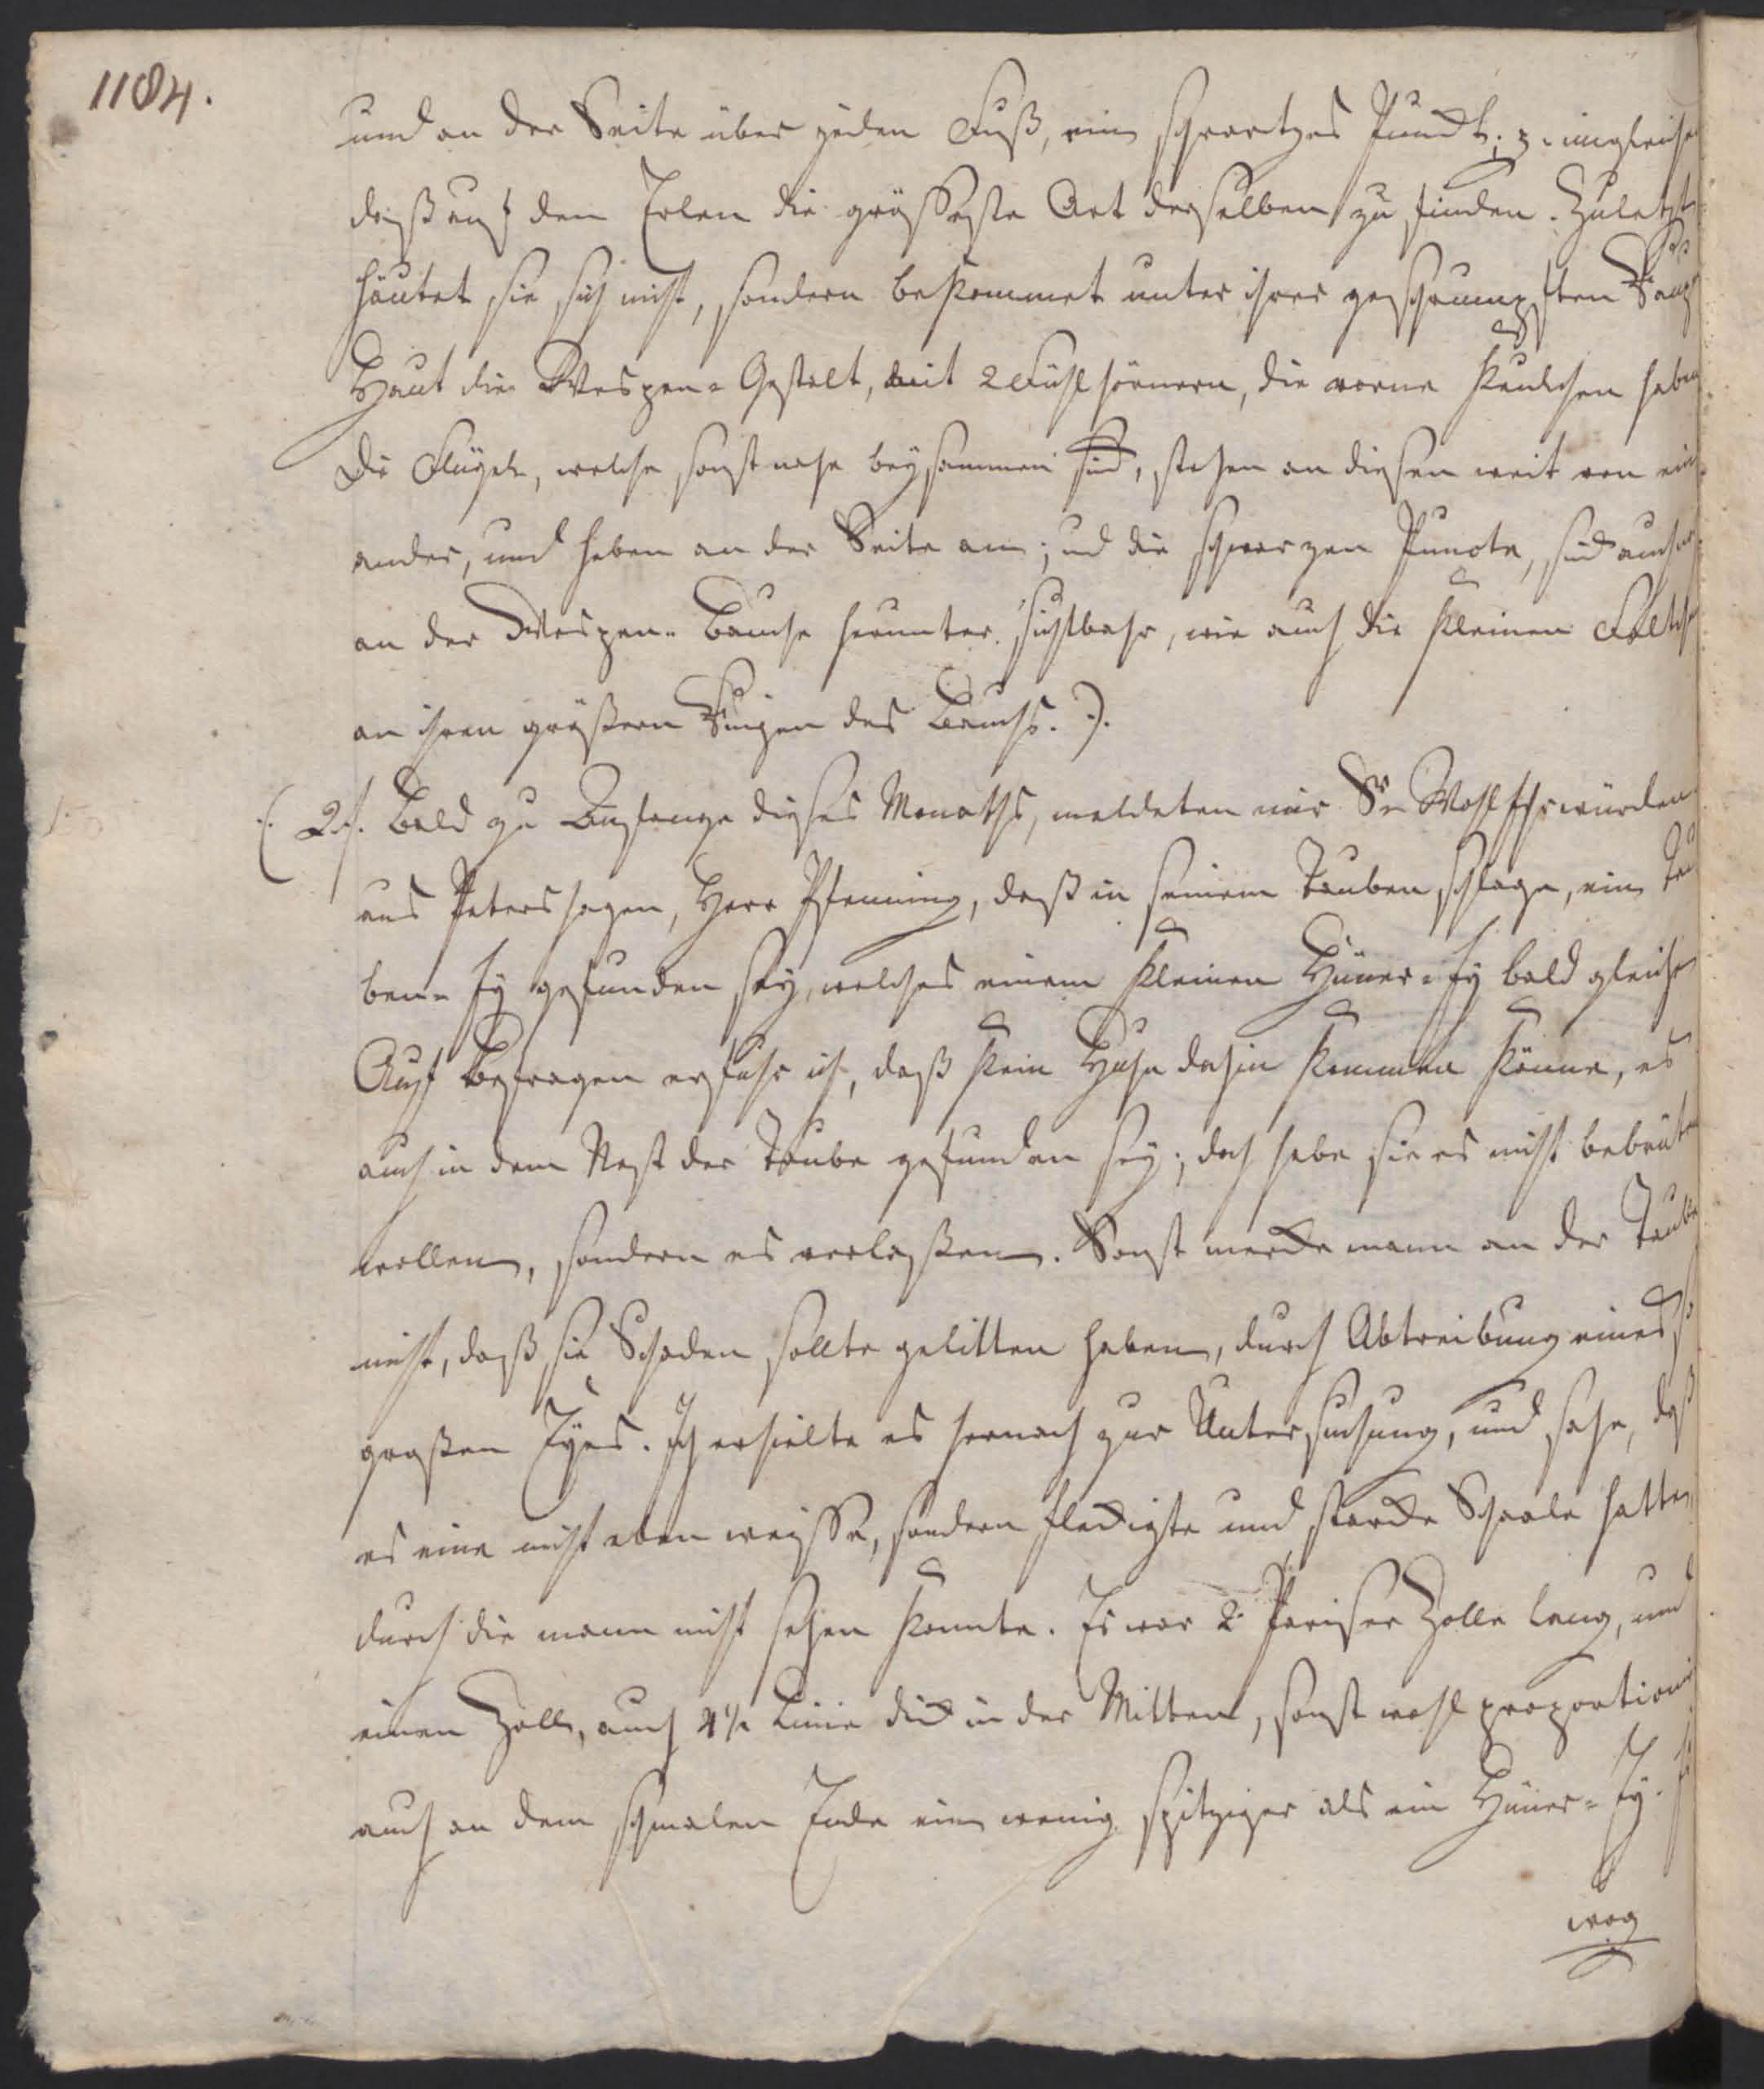 1184.
und an der Seite über jeden Fuß, ein schwartzes Punckt; z. imgleichen
daß auf den Erlen die größeste Art derselben zu finden. Zuletzt
häutet sie sich nicht, sondern bekommet unter ihrer geschrumpften
Haut die Wespen-Gestalt, mit 2 Fühlhörnern, die vorne Keulchen haben
Die Flügel, welche sonst nahe beysammen sind, stehen an diesen weit von ein-
ander, und heben an der Seite an; und die schwarzen Puncte, sind auch
an der Wespen-Bauche herunter sichtbahr, wie auch die kleinen
an ihren größern Ringen des Bauchs.).
(2.) Bald zu Anfange dieses Monaths, meldeten mir Sr. Wohlehrwürden
aus Petershagen, Herr Pfenning, daß in seinem Taubenschlage, ein Tau-
ben-Ey gefunden sey, welches einem kleinen Hüner-Ey bald gleiche
Auf Befragen erfuhr ich, daß kein Huhn dahin kommen könne, es
auch in dem Nest der Taube gefunden sey; doch habe sie es nicht bebrüten
wollen, sondern es verlaßen. Sonst mercke mann an der Taube
nicht, daß sie Schaden sollte gelitten haben, durch Abtreibung eines so
großen Eyes. Ich erhielte es hernach zur Untersuchung, und sahe, daß
es eine nicht eben weisse, sondern fleckigte und starcke Schaale hatte,
durch die mann nicht sehen konnte. Es war 2 Pariser Zolle lang, und
einen Zoll, auch 4½ Linie dick in der Mitten, sonst wohl proportioni
auch an dem schmalen Ende ein wenig spitziger als ein Hüner-Ey.
wog